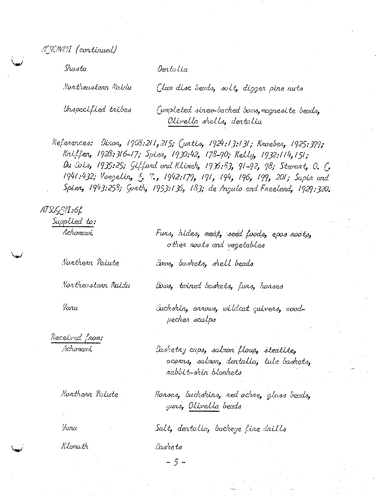 ACHOMAWI (continued)
Shasta Dentalia
Northeastern Maidu Clam disc beads, salt, digger pine nuts
Unspecified tribes Completed sinew-backed bows, magnesite beads,
Olivella shells, dentalia
References: Dixon, 1908:211,215; Curtis, 1924:13:131; Kroeber, 1925:399;
Kniffen, 1928:316-17; Spier, 1930:42, 178-90; Kelly, 1932:114,151;
Du Bois, 1935:25; Gifford and Klimek, 1936:83, 91-92, 98; Stewart, O. C.
1941:432; Voegelin, E. 1942:179, 191, 194, 196, 199, 201; Sapir and
Spier, 1943:258; Garth, 1953:136, 183; de Angulo and Freeland, 1929:320.
ATSUGEWI:6f
Supplied to:
Achomawi Furs, hides, meat, seed foods, epos roots,
other roots and vegetables
Northern Paiute Bows, baskets, shell beads
Northeastern Maidu Bows, twined baskets, furs, horses
Yana Buckskin, arrows, wildcat quivers, wood-
pecker scalps
Received from:
Achomawi Basketry caps, salmon flour, steatite,
acorns, salmon, dentalia, tule baskets,
rabbit-skin blankets
Northern Paiute Horses, buckskins, red ochre, glass beads,
guns, Olivella beads
Yana Salt, dentalia, buckeye fire drills
Klamath Baskets
- 5 -